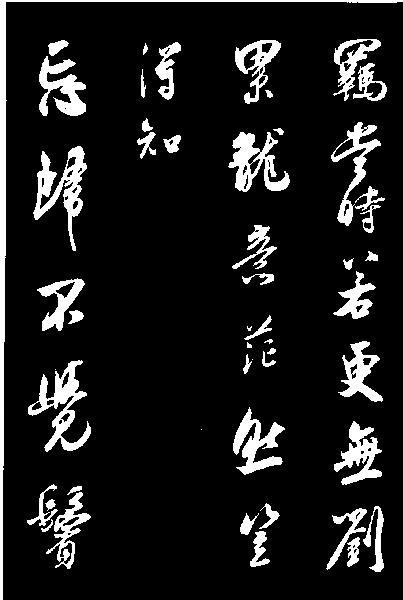 羈當時若更無劉
累龍意茫然豈
得知
忘歸不覺鬢